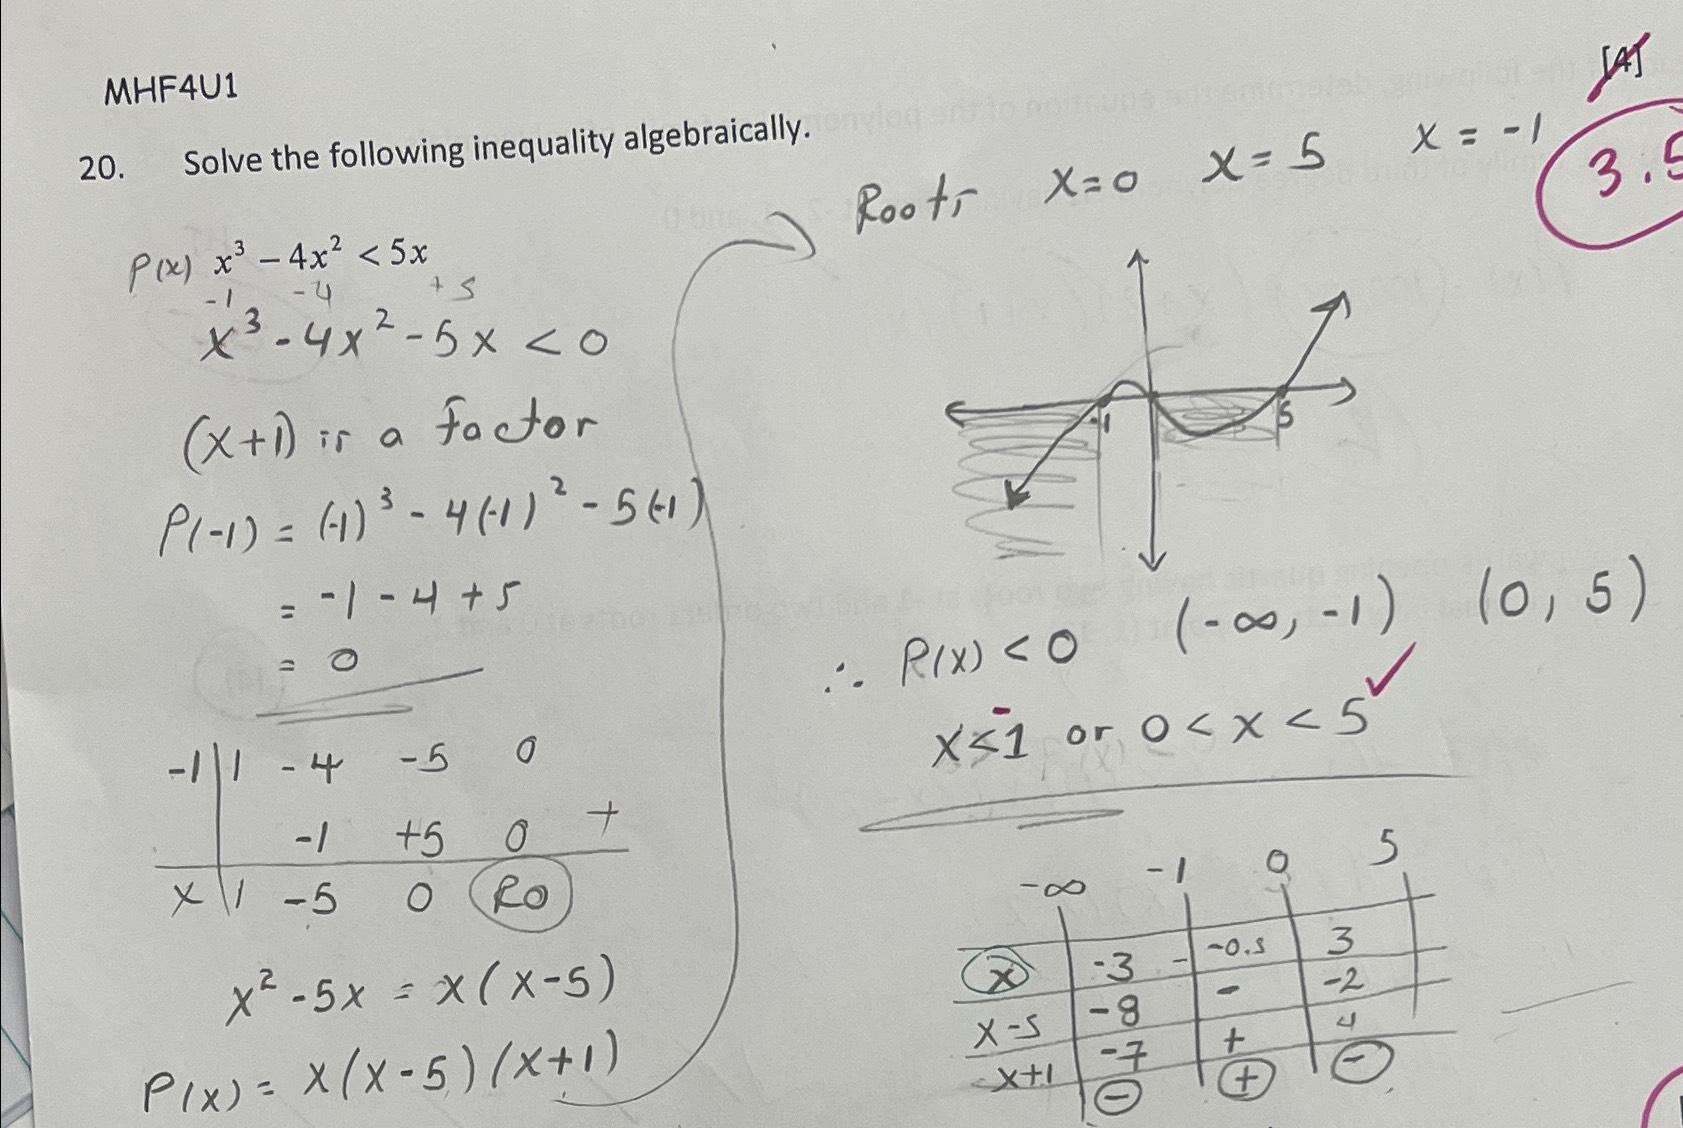 MHF4U1
[4]
3.5
20. Solve the following inequality algebraically.
P(x) x³ - 4x² < 5x
-1 -4 +5
x³ - 4x² - 5x < 0
(x+1) is a factor
P(-1) = (-1)³ - 4(-1)² - 5(-1)
= -1 - 4 + 5
= 0
-1 | 1 -4 -5 0
-1 +5 0 +
x | 1 -5 0 R0
x² - 5x = x(x-5)
P(x) = x(x-5)(x+1)
Roots x=0 x=5 x=-1
-1 5
∴ P(x) < 0 (-∞, -1) (0, 5)
x<-1 or 0 < x < 5 ✓
-∞ -1 0 5
x -3 - -0.5 3
x-5 -8 - -2
x+1 -7 + 4
- + -